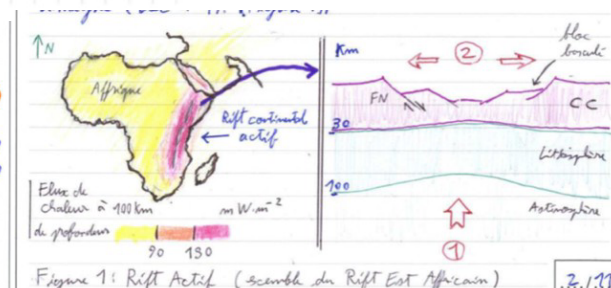 ↑N
Affrique
Rift continental
actif
Flux de
chaleur à 100 Km
de profondeur
m W.m⁻²
90 130
Km
②
bloc
basculé
FN
CC
30
Lithosphère
100
Asténosphère
①
Figure 1: Rift Actif (exemble du Rift Est Affricain)
2/11